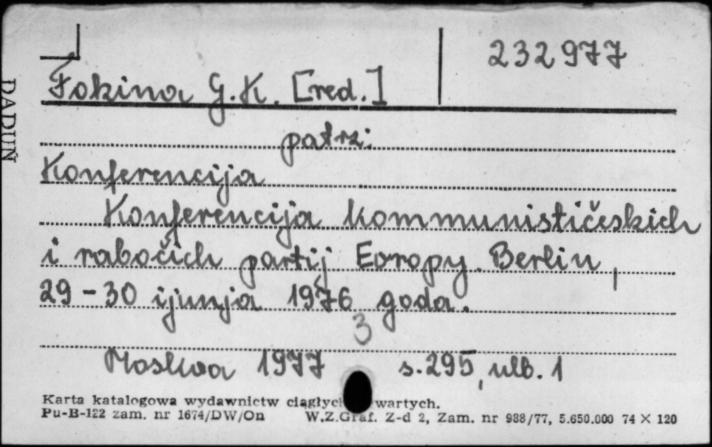 232977
Fokina G.K. [red.]
patrz:
Konferencija
Konferencija kommunističeskich
i rabočich partij Evropy. Berlin,
29-30 ijunja 1976 goda.
3
Moskva 1977 s.295, ulb. 1
Karta katalogowa wydawnictw ciągłyc wartych.
Pu-B-122 zam. nr 1674/DW/On W.Z.Graf. Z-d 2, Zam. nr 988/77, 5.650.000 74 X 120
DADUŃ